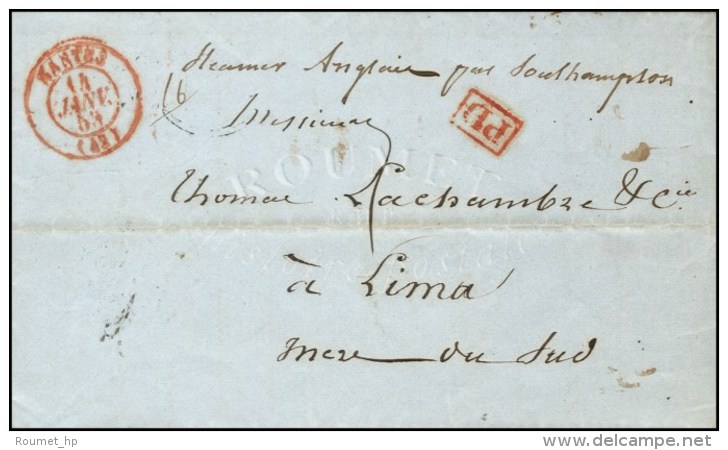 NANTES
14
JANV.
53
(42)
Steamer Anglais par Southampton
16
PD
Messieurs
ROUMET
Thomas Lachambre & Cie
à Lima
mer du Sud
Roumet_hp
www.delcampe.net